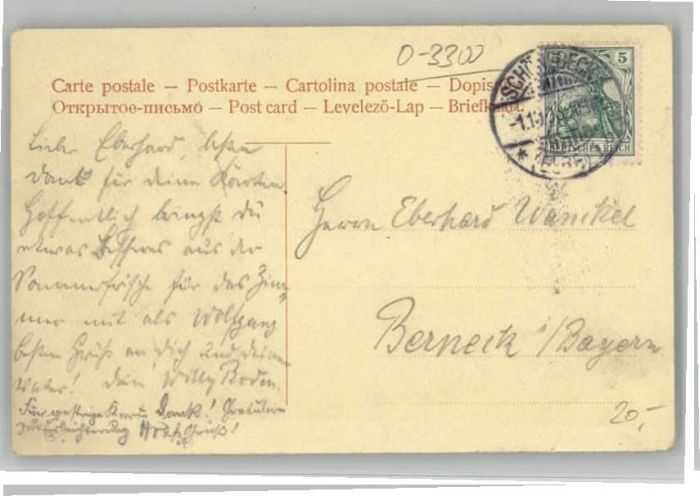 O-3300
Carte postale — Postkarte — Cartolina postale — Dopis
Открытое-письмо — Post card — Levelező-Lap — Briefkaart.
5
DEUTSCHES REICH
Lieber Eberhard, besten
Dank für deine Karten.
Hoffentlich bringst du
etwas Besseres aus der
Sommerfrische für das Zim-
mer mit als Wolfgang
besten Gruß an dich und deinen
Vater! Dein Willy
Für gestrige Karte Dank! Gratuliere
zur Gruß!
Herrn Eberhard Wanckel
Berneck i/Bayern
20,-